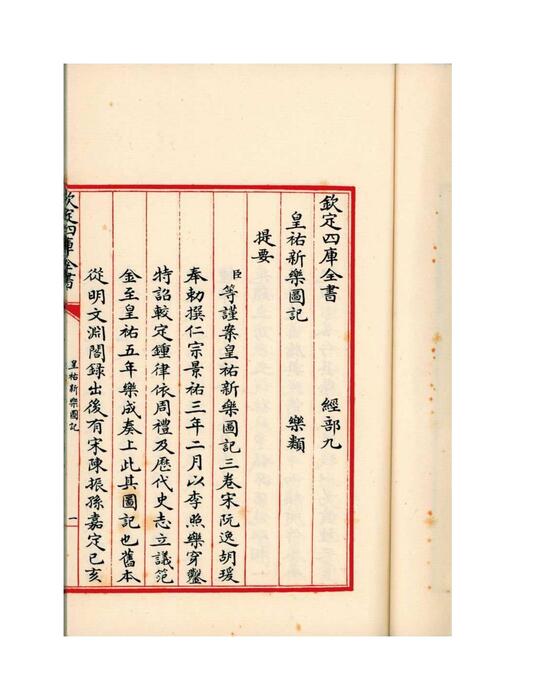 欽定四庫全書　經部九
皇祐新樂圖記　樂類
提要
臣等謹案皇祐新樂圖記三卷宋阮逸胡瑗
奉勅撰仁宗景祐三年二月以李照樂穿鑿
特詔較定鍾律依周禮及歷代史志立議范
金至皇祐五年樂成奏上此其圖記也舊本
從明文淵閣録出後有宋陳振孫嘉定已亥
欽定四庫全書
皇祐新樂圖記
一